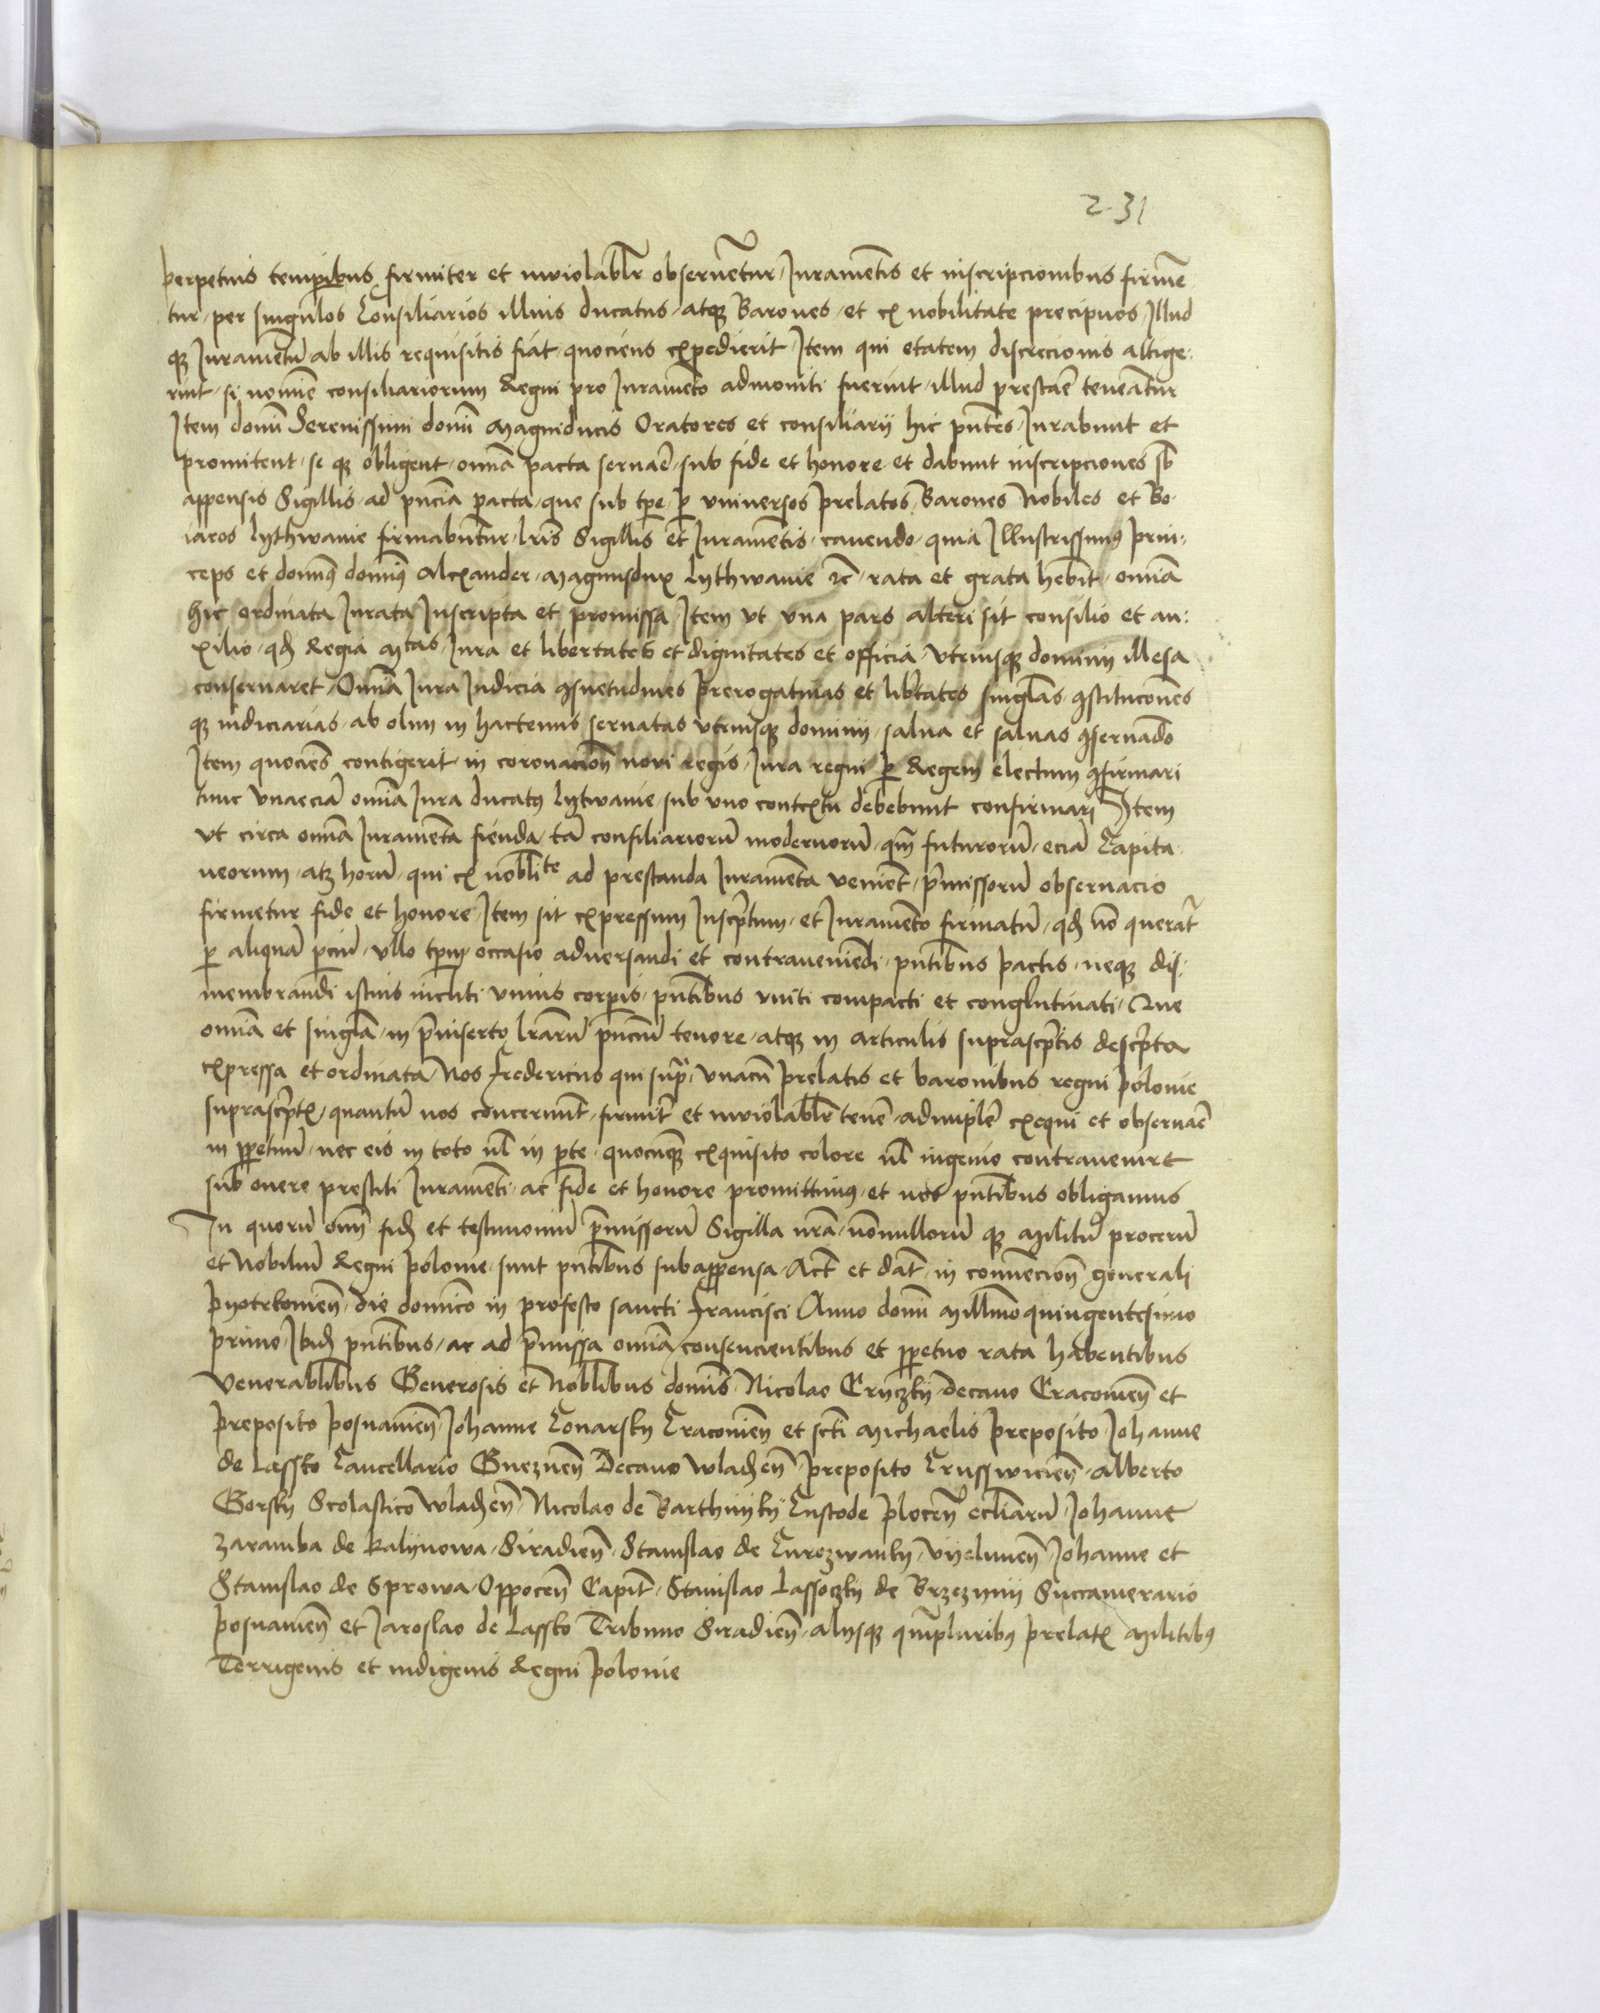 2 31
perpetuis temporibus firmiter et inviolablr observetur Juramentis et inscripcionibus firme
tur per singulos Consiliarios illius ducatus atque Barones et ex nobilitate precipuos Illud
que Juramentu ab illis requisitis fiat quociens expedierit Item qui etatem discrecionis attige:
rint si nomine consiliariorum Regni pro Juramento admoniti fuerint illud prestare teneantur
Item domini Serenissimi domini Magniducis Oratores et consiliarii hic pntes Jurabunt et
promitent se que obligent omnia pacta servare sub fide et honore et dabunt inscripciones sb
appensis Sigillis ad pncia pacta que sub tpe per universos prelatos Barones Nobiles et Bo
iaros Lythwanie firmabuntur lris Sigillis et Juramentis cavendo quia Illustrissimus prin:
ceps et domnus dominus Alexander Magnusdux Lythwanie etc rata et grata hebit omnia
hic ordinata Jurata Inscripta et promissa Item ut una pars alteri sit consilio et au:
xilio qd Regia Mtas Jura et libertates et dignitates et officia utriusque dominii illesa
conservaret Omnia Jura Judicia consuetudines prerogativas et libertates singulas constituciones
que iudiciarias ab olim in hactenus servatas utriusque dominii salva et salvas conservando
Item quociens contigerit in coronacion novi regis Jura regni per Regem electum confirmari
tunc unaecia omnia Jura ducatus Lytwanie sub uno contextu debebunt confirmari Item
ut circa omnia Juramenta fienda tam consiliariorum modernorum quam futurorum eciam Capita
neorum atque horum qui ex noblite ad prestanda Juramenta venient premissorum observacio
firmetur fide et honore Item sit expressum Inscriptum et Juramento firmatum qd non querat
per aliquam parcium ullo tpe occasio adversandi et contraveniendi pntibus pactis neque dis:
membrandi istius incliti unius corporis pntibus uniti compacti et conglutinati Que
omnia et singula in preinserto lrarum pncium tenore atque in articulis suprascriptis descripta
expressa et ordinata Nos Fredericus qui supra unacum prelatis et baronibus regni Polonie
suprascriptis quantum nos concernunt firmiter et inviolablr tenere adimplere exequi et observare
in perpetuum nec eis in toto vel in parte quocunque exquisito colore vel ingenio contravenire
sub onere prestiti Juramenti ac fide et honore promittimus et nos pntibus obligamus
In quorum omnium fidem et testimonium premissorum Sigilla nra nonnullorum que Militum procerum
et Nobilium Regni Polonie sunt pntibus subappensa Act et dat in convencion generali
Pyotrkovien die dominico in profesto sancti Francisci Anno domini Millesimo quingentesimo
primo Ibidem pntibus ac ad premissa omnia consencientibus et perpetuo rata habentibus
Venerablibus Generosis et Noblibus dominis Nicolao Cryczky Decano Cracovien et
preposito posnanien Johanne Conarsky Cracovien et scti Michaelis preposito Johanne
de Lassko Cancellario Gneznen Decano Wladen preposito Crusswicien Alberto
Gorsky Scolastico Wladen Nicolao de Barthniky Custode plocen ecliarum Johanne
Zaramba de Kalynowa Siradien Stanislao de Curozwanky Vyelunen Johanne et
Stanislao de Sprowa Oppocen Capit Stanislao Lassoczky de Brzezyny Succamerario
posnanien et Jaroslao de Lassko Tribuno Siradien alysque quampluribus prelatis Militibus
Terrigenis et indigenis Regni Polonie